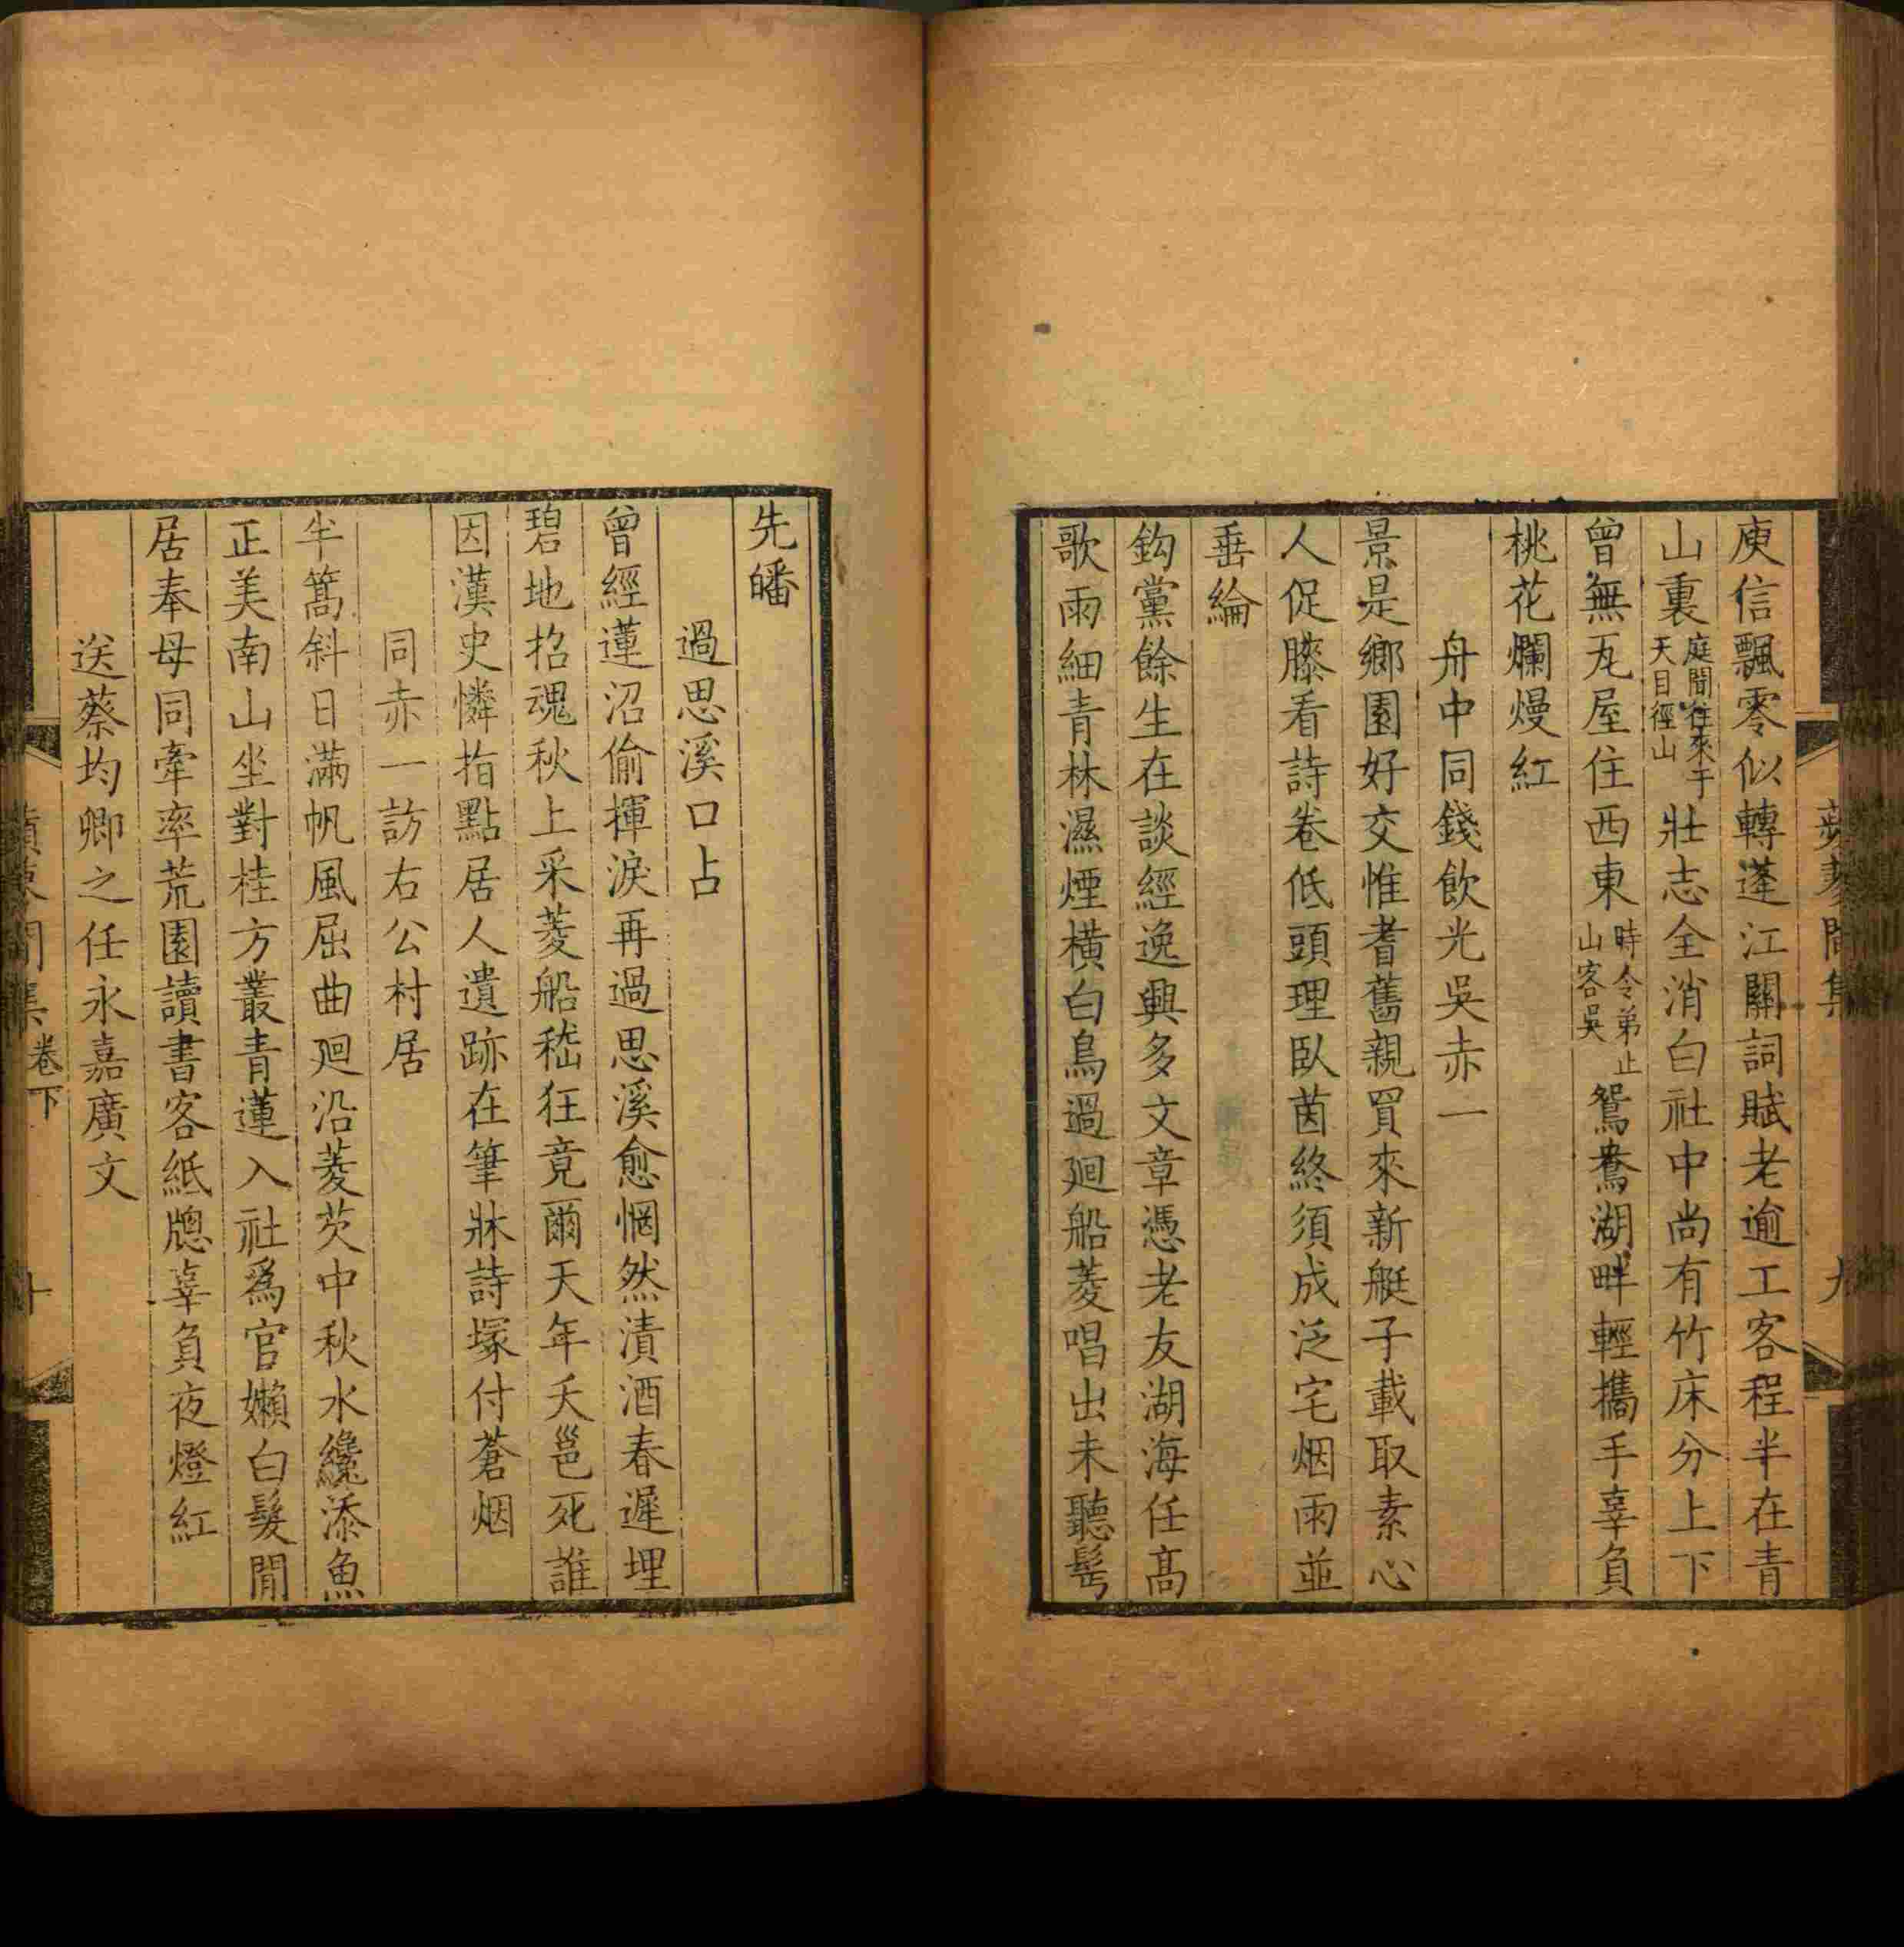 庾信飄零似轉蓬江關詞賦老逾工客程半在青
山裏庭聞往來于天目徑山壯志全消白社中尚有竹床分上下
曾無瓦屋住西東時令弟止山客吳鴛鴦湖畔輕攜手辜負
桃花爛熳紅
舟中同錢飲光吳赤一
景是鄉園好交惟耆舊親買來新艇子載取素心
人促膝看詩卷低頭理臥茵終須成泛宅烟雨並
垂綸
鈎黨餘生在談經逸興多文章憑老友湖海任高
歌雨細青林濕煙橫白鳥過廻船菱唱出未聽髩
先皤
過思溪口占
曾經蓮沼偷揮淚再過思溪愈惘然漬酒春遲埋
碧地招魂秋上采菱船嵇狂竟爾天年夭邕死誰
因漢史憐指點居人遺跡在筆牀詩塚付蒼烟
同赤一訪右公村居
半篙斜日滿帆風屈曲廻沿菱芡中秋水纔添魚
正美南山坐對桂方叢青蓮入社為官嬾白髮閒
居奉母同牽率荒園讀書客紙牕辜負夜燈紅
送蔡均卿之任永嘉廣文
卷下
十